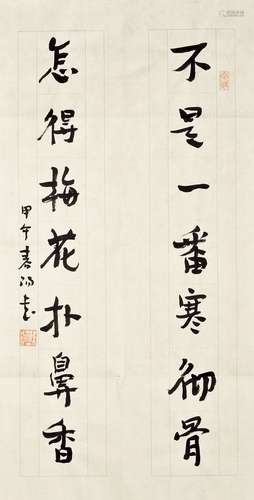 不是一番寒彻骨
怎得梅花扑鼻香
甲午春